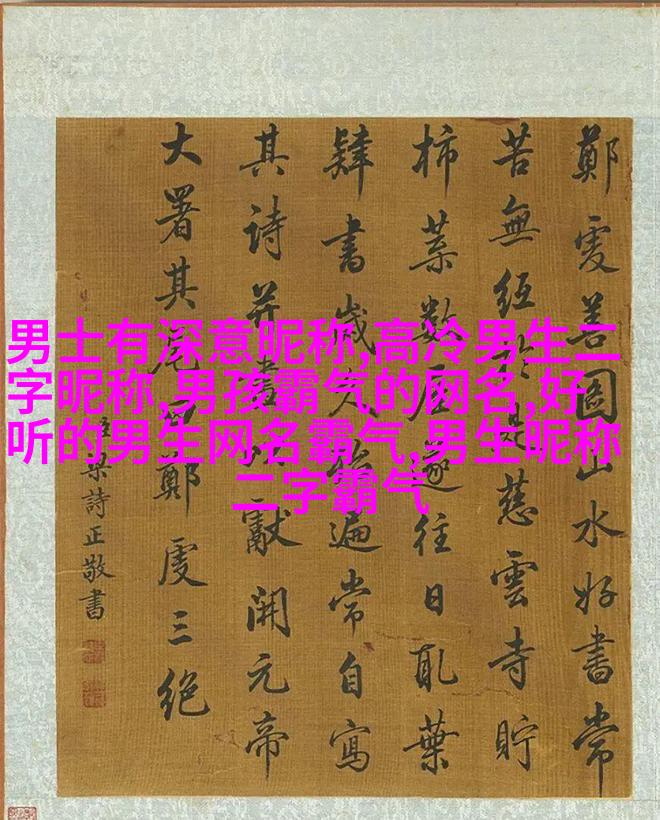 男士有深意昵称,高冷男生二
字昵称,男孩霸气的网名,好
听的男生网名霸气,男生昵称
二字霸气
鄭虔善圖山水好書常
苦無紙於是慈雲寺貯
柿葉數屋遂往日取葉
肄書歲久遍常自寫
其詩并畫以獻開元帝
大署其尾鄭虔三絕
梁詩正敬書